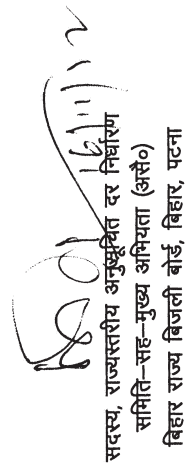 16/11/12
सदस्य, राज्यस्तरीय अनुसूचित दर निर्धारण
समिति-सह-मुख्य अभियंता (असै०)
बिहार राज्य बिजली बोर्ड, बिहार, पटना